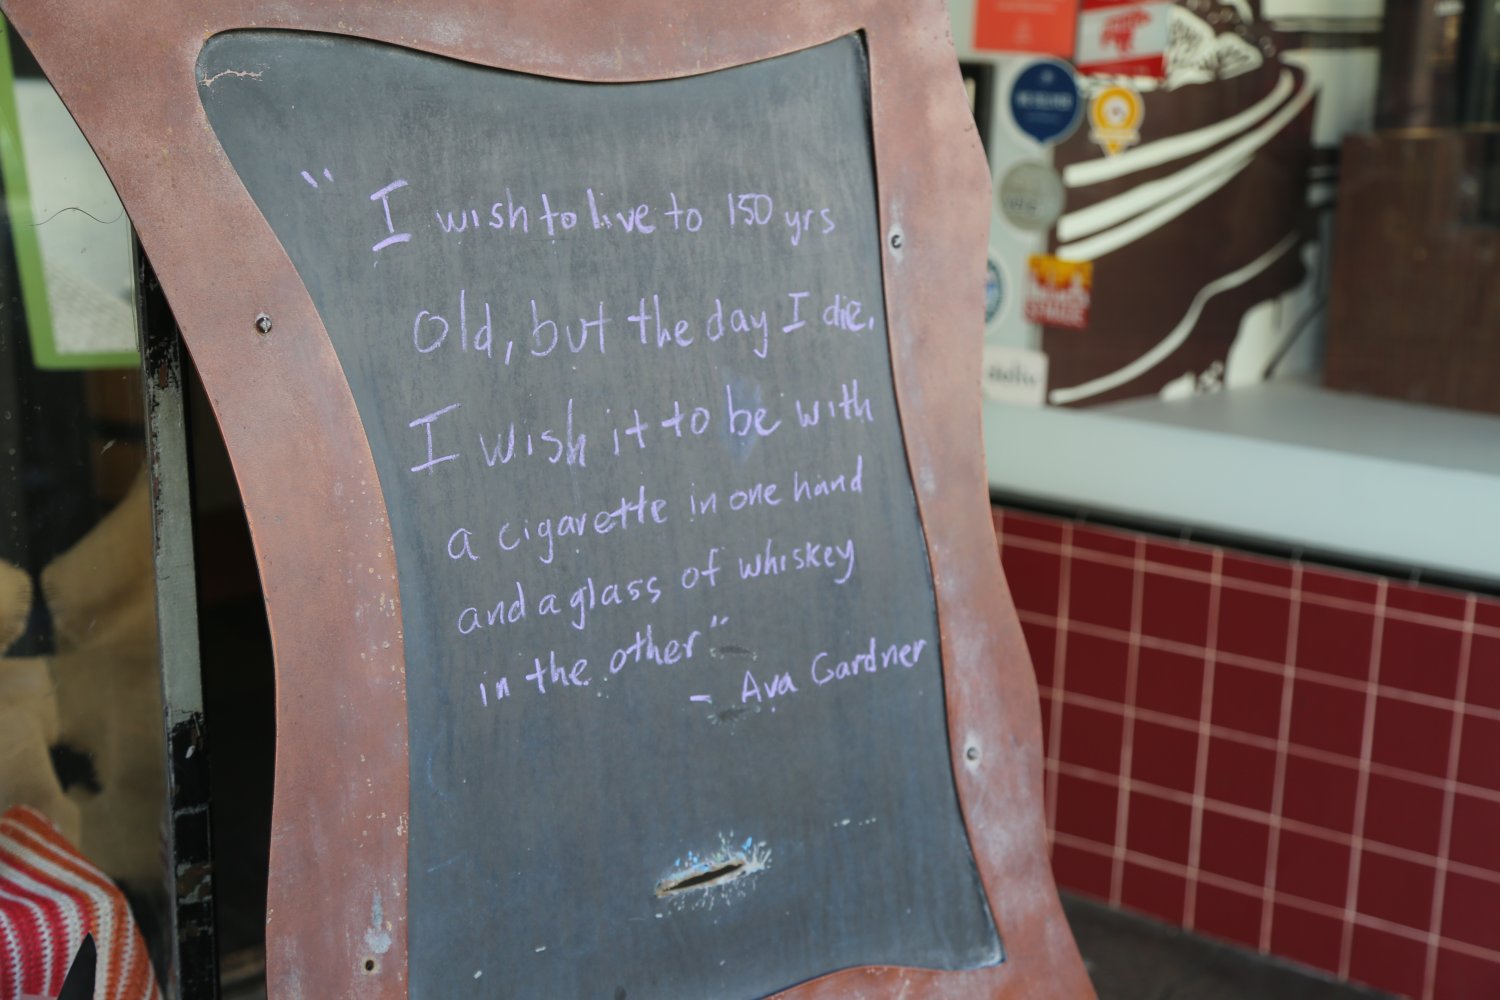 " I wish to live to 150 yrs
old, but the day I die,
I wish it to be with
a cigarette in one hand
and a glass of whiskey
in the other"
- Ava Gardner